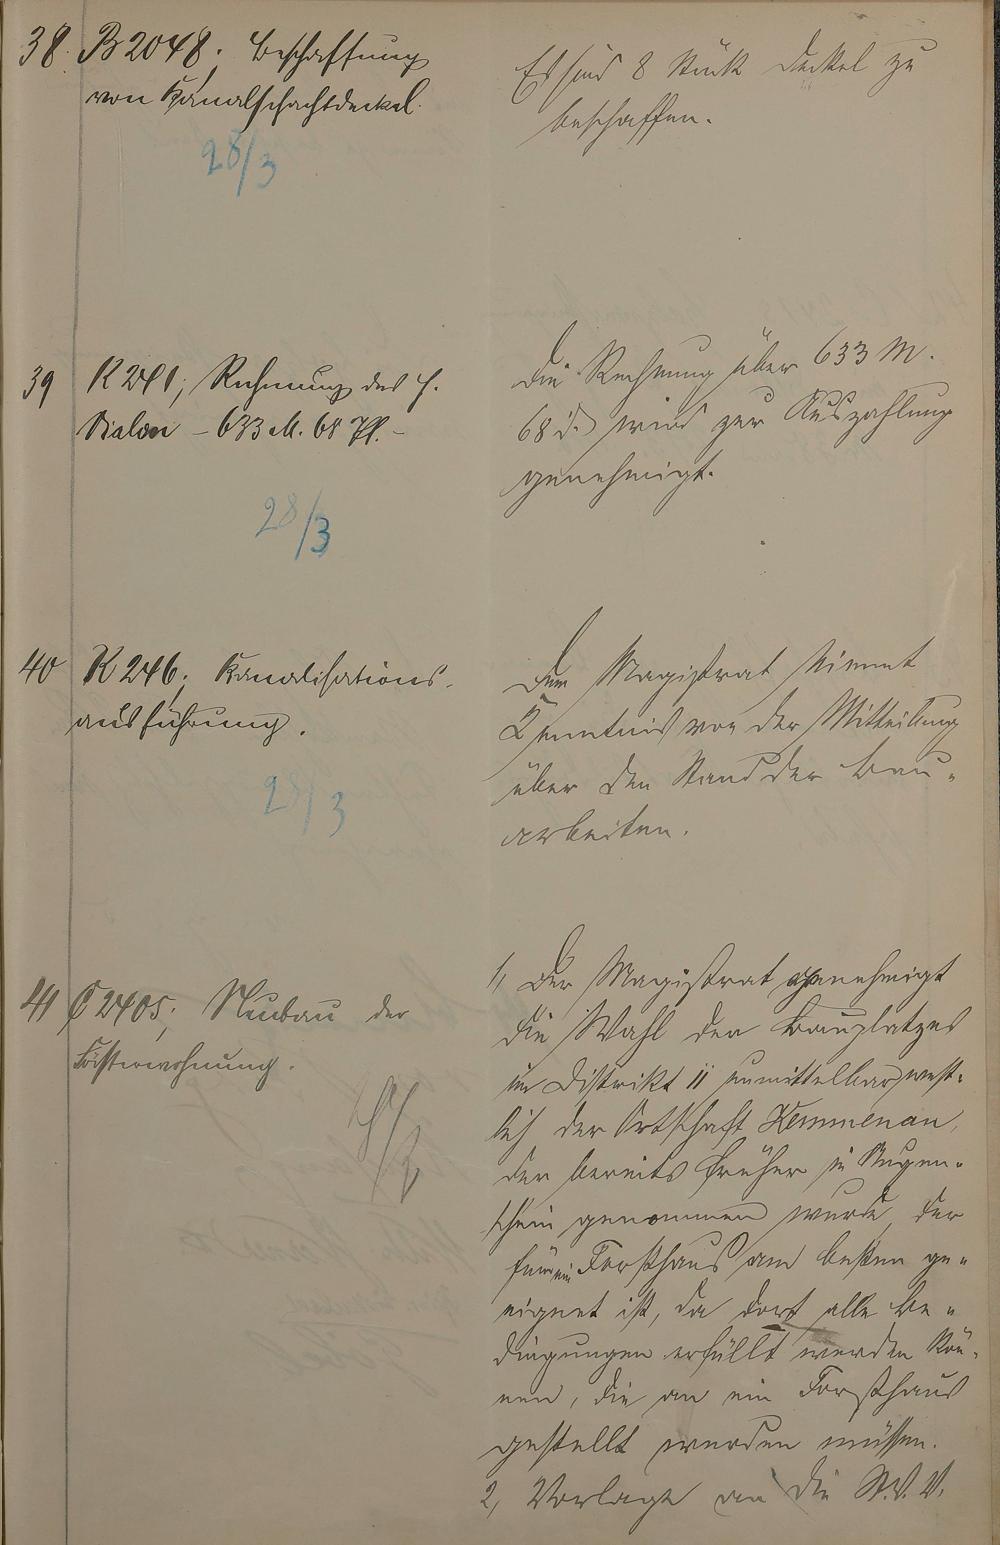 38. B 2048; Beschaffung
von Kanalschachtdeckel.
28/3
Es sind 8 Stück Deckel zu
beschaffen.
39 K 241; Rechnung des H.
– 633 M. 68 Pf. –
28/3
Die Rechnung über 633 M.
68 d. wird zur Auszahlung
genehmigt.
40 K 246; Kanalisations-
ausführung.
28/3
Der Magistrat nimmt
Kenntnis von der Mitteilung
über den Stand der Bau-
arbeiten.
41 C 2405; Neubau der
Försterwohnung.
1, Der Magistrat genehmigt
die Wahl des Bauplatzes
im Distrikt 11 unmittelbar west-
lich der Ortschaft Kemmenau,
der bereits früher in Augen-
schein genommen wurde, der
für ein Forsthaus am besten ge-
eignet ist, da dort alle Be-
dingungen erfüllt werden kön-
nen, die an ein Forsthaus
gestellt werden müssen.
2, Vorlage an die St. V. V.